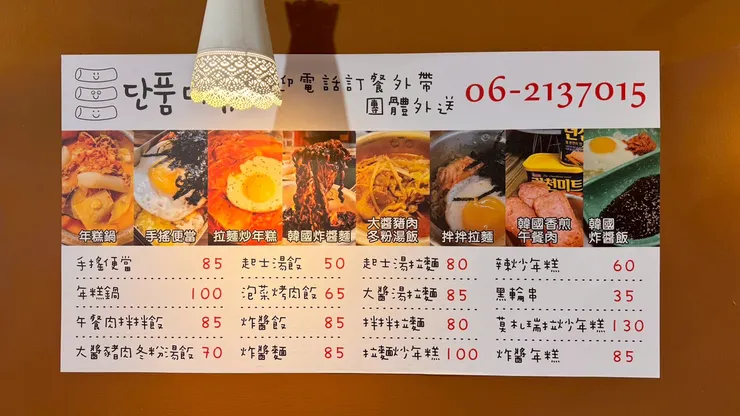 단품
迎電話訂餐外帶
團體外送
06-2137015
年糕鍋
手搖便當
拉麵炒年糕
韓國炸醬麵
大醬豬肉
冬粉湯飯
拌拌拉麵
韓國香煎
午餐肉
韓國
炸醬飯
手搖便當 85
起士湯飯 50
起士湯拉麵 80
辣炒年糕 60
年糕鍋 100
泡菜烤肉飯 65
大醬湯拉麵 85
黑輪串 35
午餐肉拌拌飯 85
炸醬飯 85
拌拌拉麵 80
莫札瑞拉炒年糕 130
大醬豬肉冬粉湯飯 70
炸醬麵 85
拉麵炒年糕 100
炸醬年糕 85